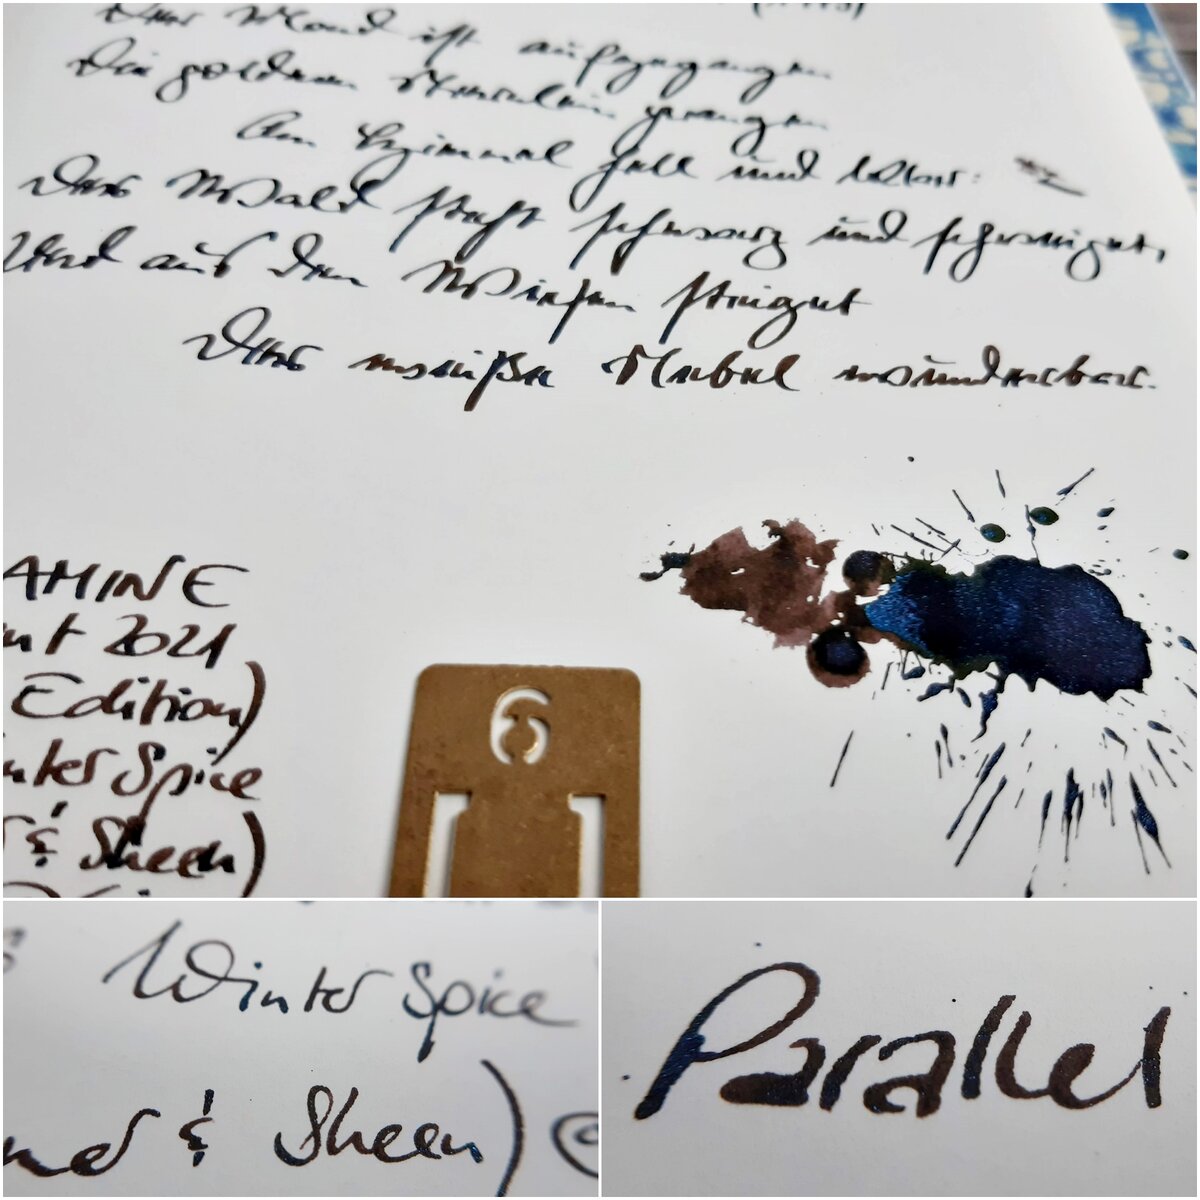 Der Mond ist aufgegangen
Die goldnen Sternlein prangen
Am Himmel hell und klar:
Der Wald steht schwarz und schweiget,
Und aus den Wiesen steiget
Der weiße Nebel wunderbar.
AMINE
nt 2021
Edition)
nter Spice
& Sheen)
6
Winter Spice
mer & Sheen)
Parallel